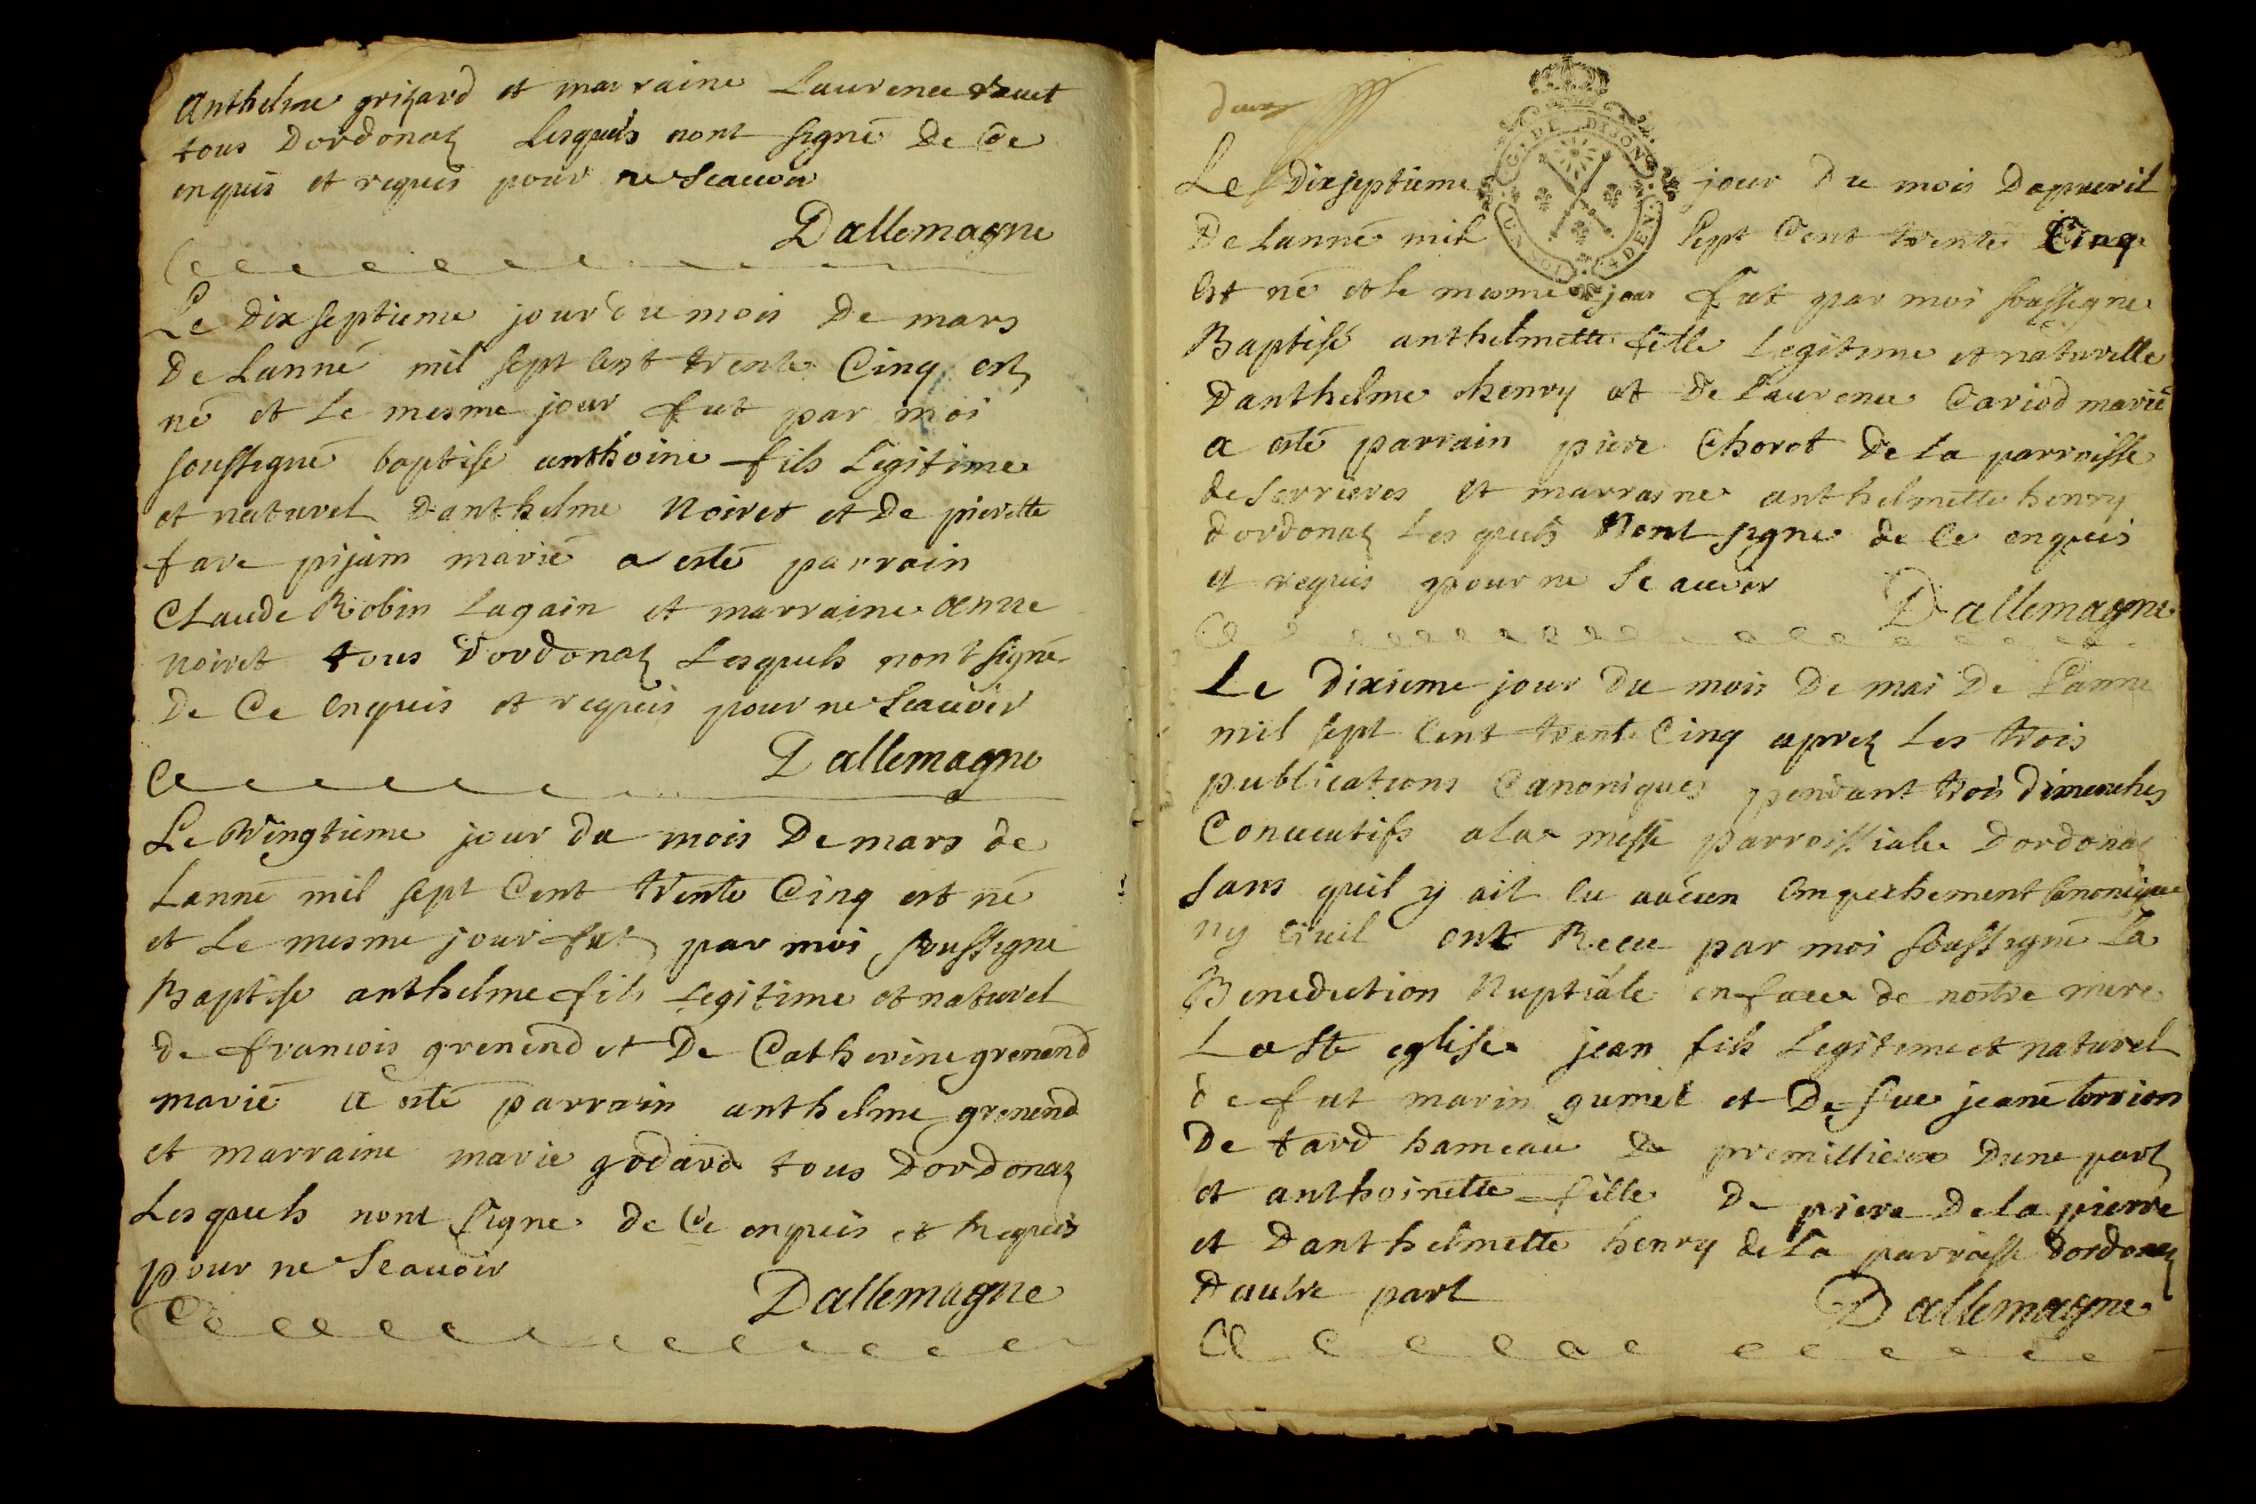 Anthelme grizard et marraine Laurence
tous Dordonaz Lesquels nont signé De Ce
enquis et requis pour ne Scauoir
Dallemagne
Le dixseptieme jour du mois De mars
De Lanné mil sept Cent trente Cinq est
né et Le mesme jour fut par moi
soussigné baptisé anthoine fils Legitime
et naturel Danthelme Noiret et De pierette
fare pijam marié a esté parrain
CLaude Robin Lagain et marraine anne
noiret tous Dordonaz Lesquels nont signé
De Ce Enquis et requis pour ne Scauoir
Dallemagne
Le Vingtieme jour du mois De mars de
Lanné mil sept Cent trente Cinq est né
et Le mesme jour fut par moi soussigné
Baptisé anthelme fils Legitime et naturel
de francois grenend et De Catherine grenend
marié a esté parrain anthelme grenend
et marraine marie godard tous Dordonaz
Lesquels nont signé de Ce enquis et Requis
pour ne Scauoir
Dallemagne
deux
G. DE DIJON
Le Dixseptieme jour du mois Dapvril
De Lanné mil sept Cent trente Cinq
Est né et le mesme jour fut par moi soussigné
Baptisé anthelmette fille Legitime et naturelle
Danthelme henry et De Laurence Cariod marié
a esté parrain piere Choret de La parroisse
de serrieres et marraine anthelmette henry
dordonaz Lesquels Nont signé de Ce enquis
et requis pour ne Scauoir
Dallemagne
Le Dixieme jour du mois De mai De Lanné
mil sept Cent trente Cinq aprez Les trois
publications Canoniques pendant trois dimenches
Consecutifs a La messe parroissiale Dordonaz
sans quil y ait Eu aucun Empechement Canonique
ny Ciuil ont Receu par moi soussigné La
Benediction Nuptiale en face de nostre mere
La ste eglise jean fils Legitime et naturel
de fut marin gumet et De fue jeane torrion
De tard hameau de premillieux Dune part
et anthoinette fille De piere De la pierre
et Danthelmette henry de La parroisse dordonaz
Dautre part
Dallemagne